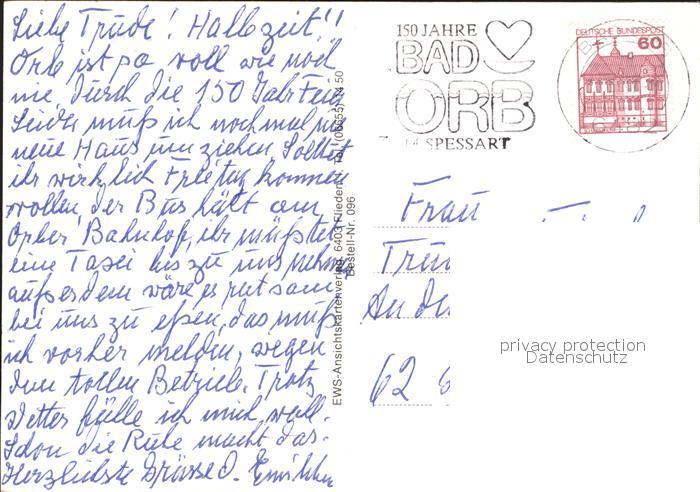 Liebe Trude! Halbzeit!!
Orb ist so voll wie noch
nie, durch die 150 Jahr Feier
Leider muß ich nochmal ins
neue Haus umziehen. Solltet
ihr wirklich Freitag kommen
wollen, der Bus hält am
Orber Bahnhof, ihr müßtet
eine Taxei bis zu uns nehmen
außerdem wäre es ratsam
bei uns zu eßen, das muß
ich vorher melden, wegen
dem tollen Betrieb. Trotz
Wetter fühle ich mich wohl.
Schon die Ruhe macht das.
Herzlichste Grüsse d. Emilchen
EWS-Ansichtskartenverlag, 6403 Flieden 1, Tel. (06655) 14 50
Bestell-Nr. 096
150 JAHRE
BAD
ORB
IM SPESSART
DEUTSCHE BUNDESPOST
60
Frau
Tru
An du
62
privacy protection
Datenschutz